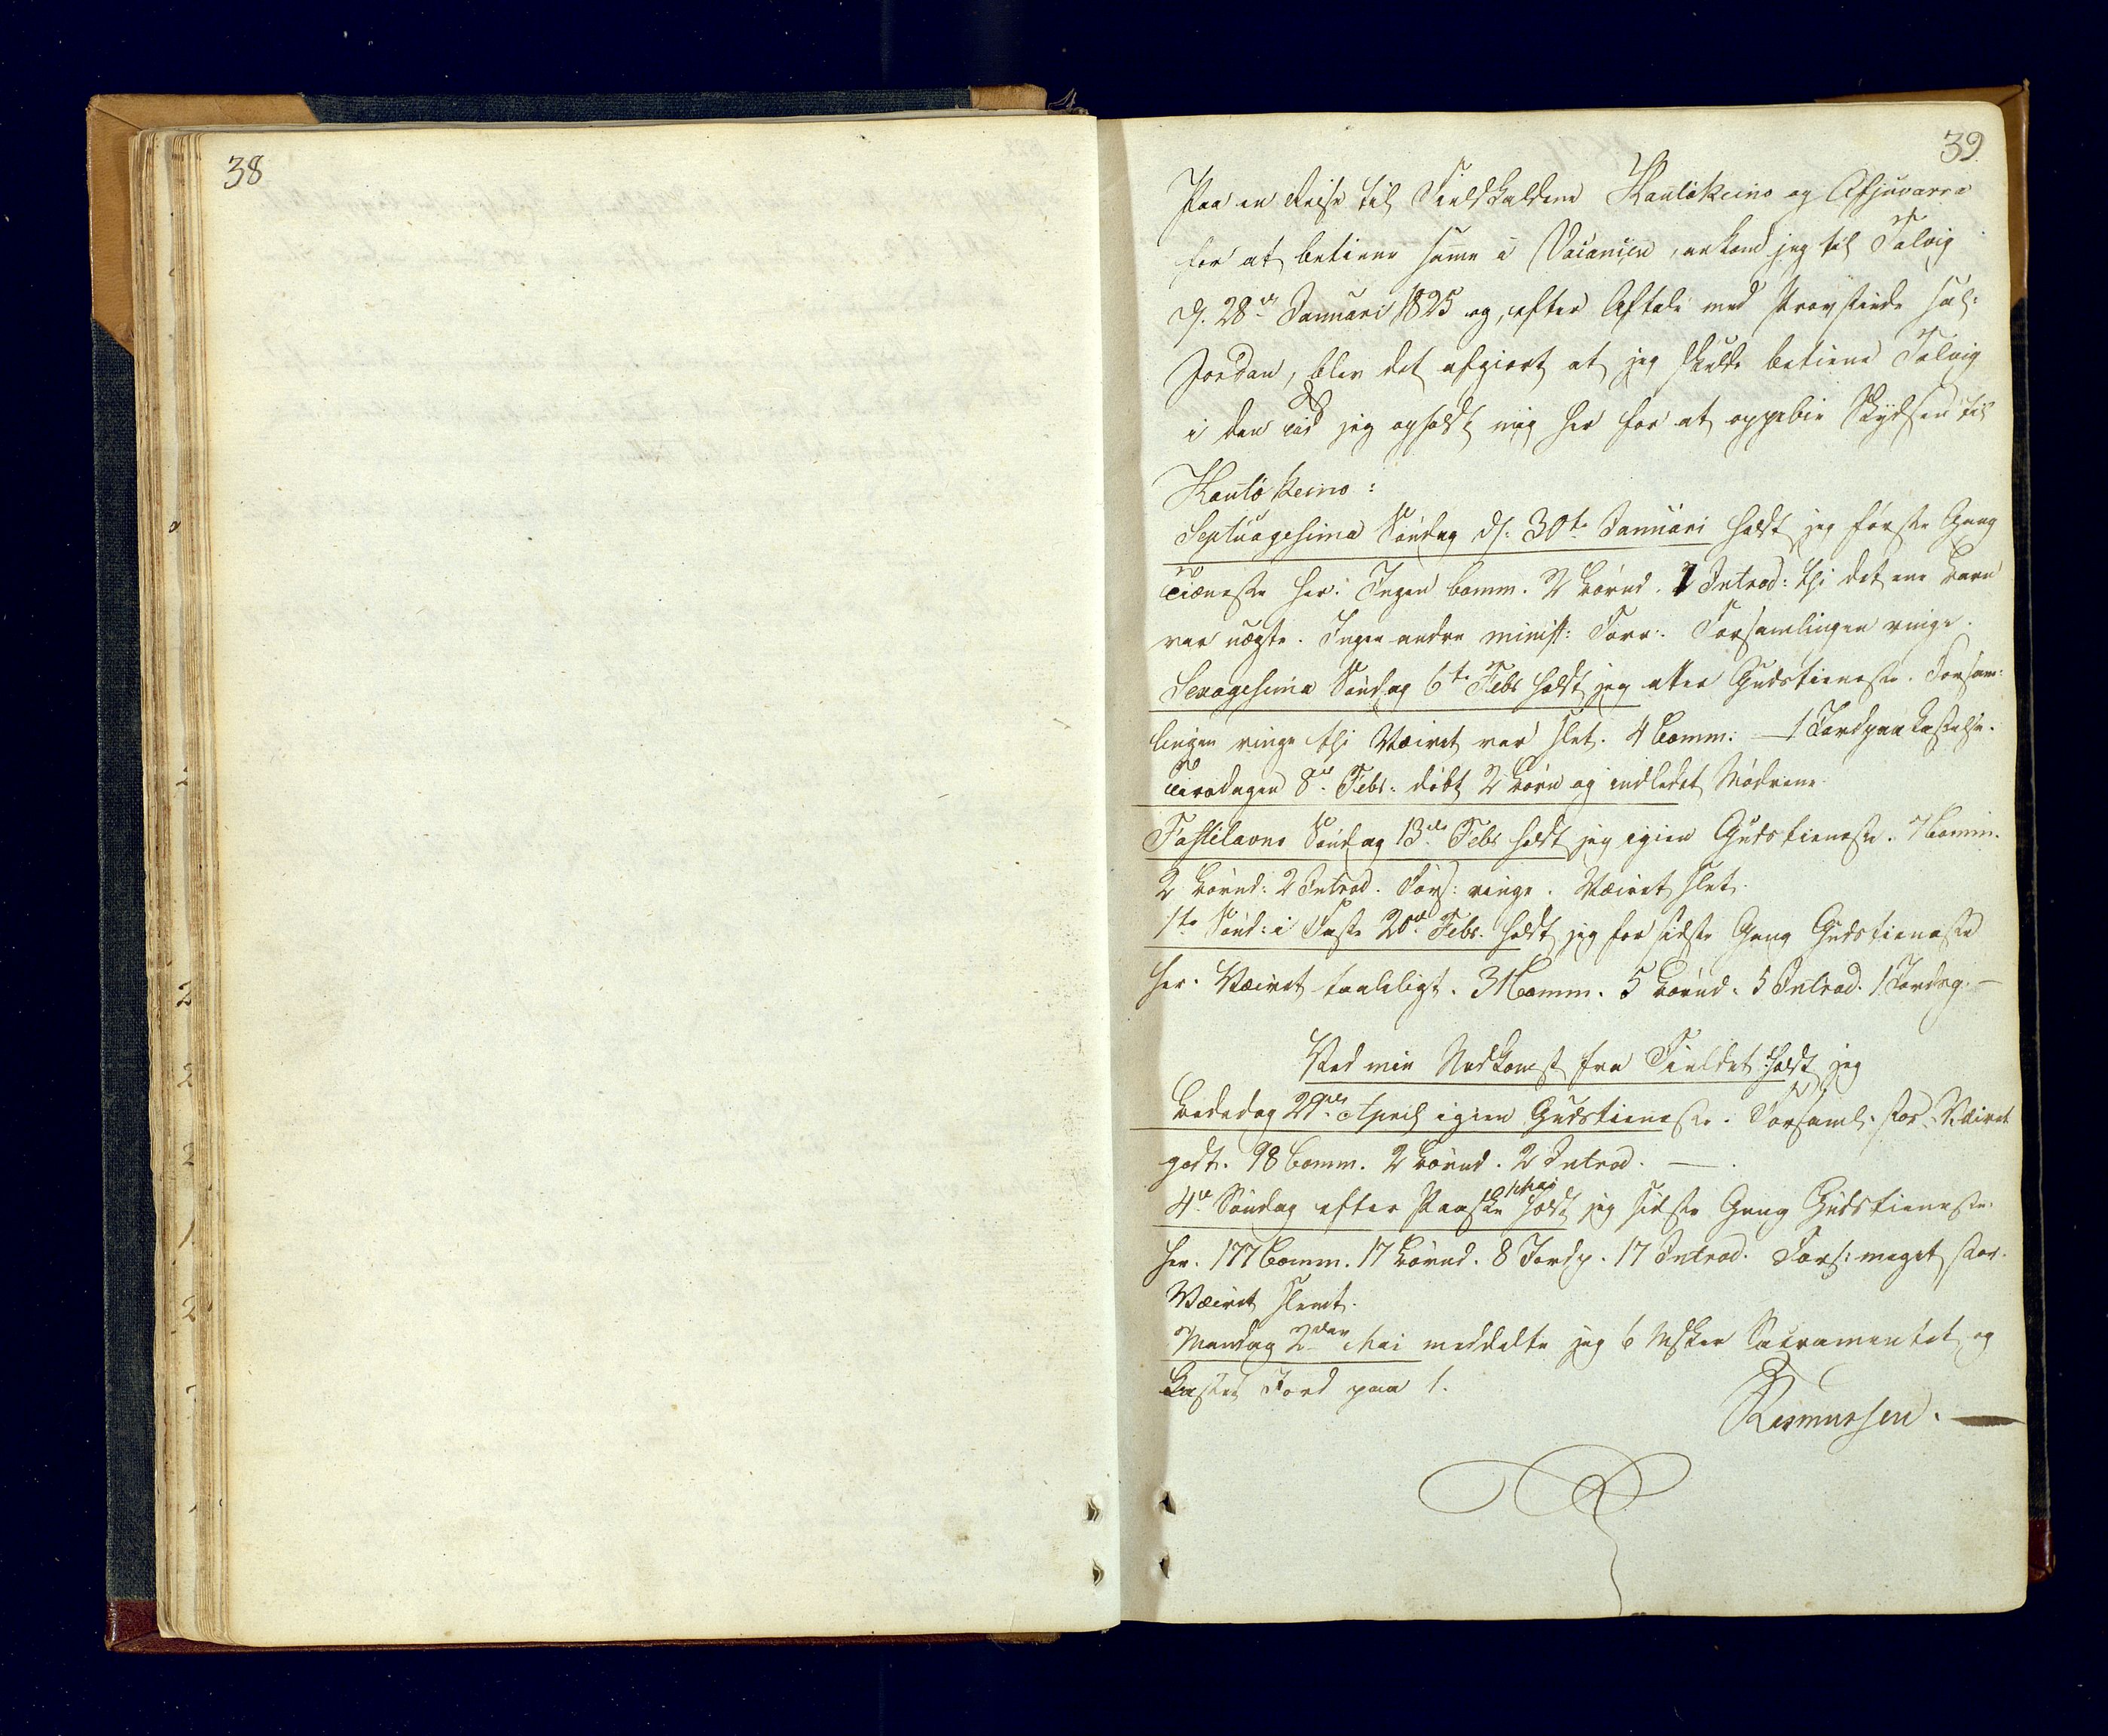 38
39
Paa en Reise til Fieldkaldene Kautokeino og Afjuvarra
for at betiene same i Vacancen, ankom jeg til Talvig
d. 28de Januari 1825 og, efter Aftale med Provstinde sal:
Jordan, blev det afgiort at jeg skulde betiene Talvig
i den Tid jeg opholdt mig her for at oppebie Skydsen til
Kautokeino:
Septuagesima Søndag d: 30te Januari holdt jeg første Gang
Tieneste her. Ingen Comm. 2 Børned. 1 Introd: thi det ene Barn
var uægte. Ingen andre minist: Forr: Forsamlingen ringe.
Sexagesima Søndag 6te Febr holdt jeg atter Gudstieneste. Forsam:
lingen ringe thi Veiret var slet. 4 Comm: — 1 Jordpaakastelse.
Tirsdagen 8de Febr: døbt 2 Børn og indledet Mødrene
Fastelavns Søndag 13de Febr holdt jeg igien Gudstieneste. 7 Comm.
2 Børned: 2 Introd. Fors: ringe. Veiret slet.
1te Sønd: i Faste 20de Febr. holdt jeg for sidste Gang Gudstieneste
her. Veiret taaleligt. 31 Comm. 5 Børned. 5 Introd. 1 Jordp. —
Ved min Nedkomst fra Fieldet holdt jeg
Bededag 29de April igien Gudstieneste. Forsaml. stor. Veiret
godt. 98 Comm. 2 Børned. 2 Introd. — .
4de Søndag efter Paaske 1 Mai holdt jeg sidste Gang Gudstieneste
her. 177 Comm. 17 Børned. 8 Jordp. 17 Introd. Fors: meget stor.
Veiret slemt.
Mandag 2den Mai meddelte jeg 6 Msker Sacramentet og
kastet Jord paa 1.
Rasmussen. —